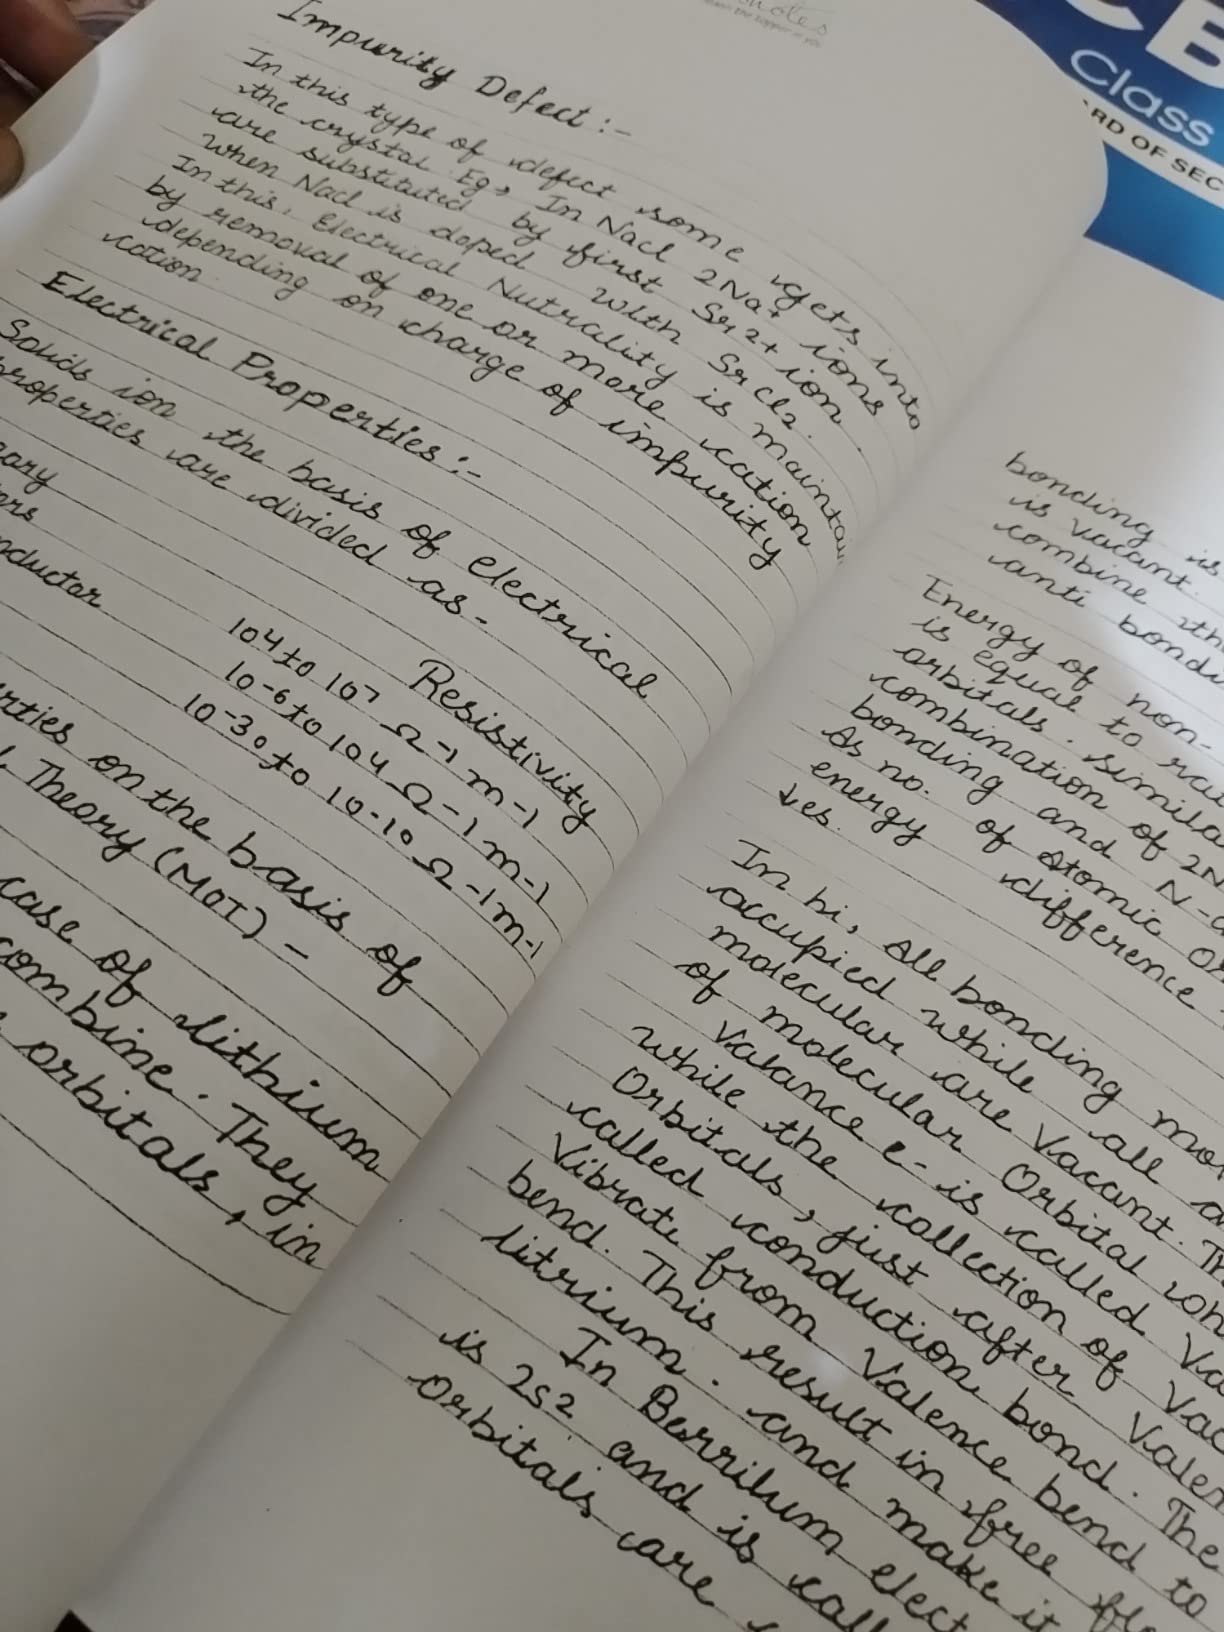 Impurity Defect :-
In this type of defect some gets into
the crystal. Eg, In Nacl 2Na+ ions
are substituted by first Sr2+ ion
when Nacl is doped with Srcl2.
In this, Electrical Nutrality is maintai
by removal of one or more cation
depending on charge of impurity
cation.
Electrical Properties :-
Solids ion the basis of electrical
properties are divided as -
Resistivity
nductor 104 to 107 Ω-1 m-1
10-6 to 104 Ω-1 m-1
10-30 to 10-10 Ω-1m-1
rties on the basis of
Theory (MOT) -
case of lithium
combine. They
orbitals, in
bonding is
is vacant.
combine th
anti bondi
Energy of non-
is equal to
orbitals. Simila
combination of 2N
bonding and N-
As no. of atomic O
energy difference
↓es.
In hi, All bonding mo
occupied while all a
molecular are Vacant. Th
of molecular Orbital wh
Valance e- is called Va
while the collection of Vac
Orbitals, just after Valen
called conduction bond. The
Vibrate from Valence bend to
bend. This result in free flo
litrium. and make it
In Berrilium elect
is 2S2 and is call
orbitals are
CB
Class
RD OF SEC